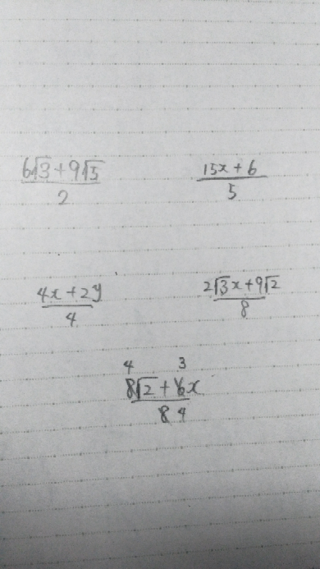 6√3+9√5 / 2
15x+6 / 5
4x+2y / 4
2√3x+9√2 / 8
4 3
8√2+6x / 8 4